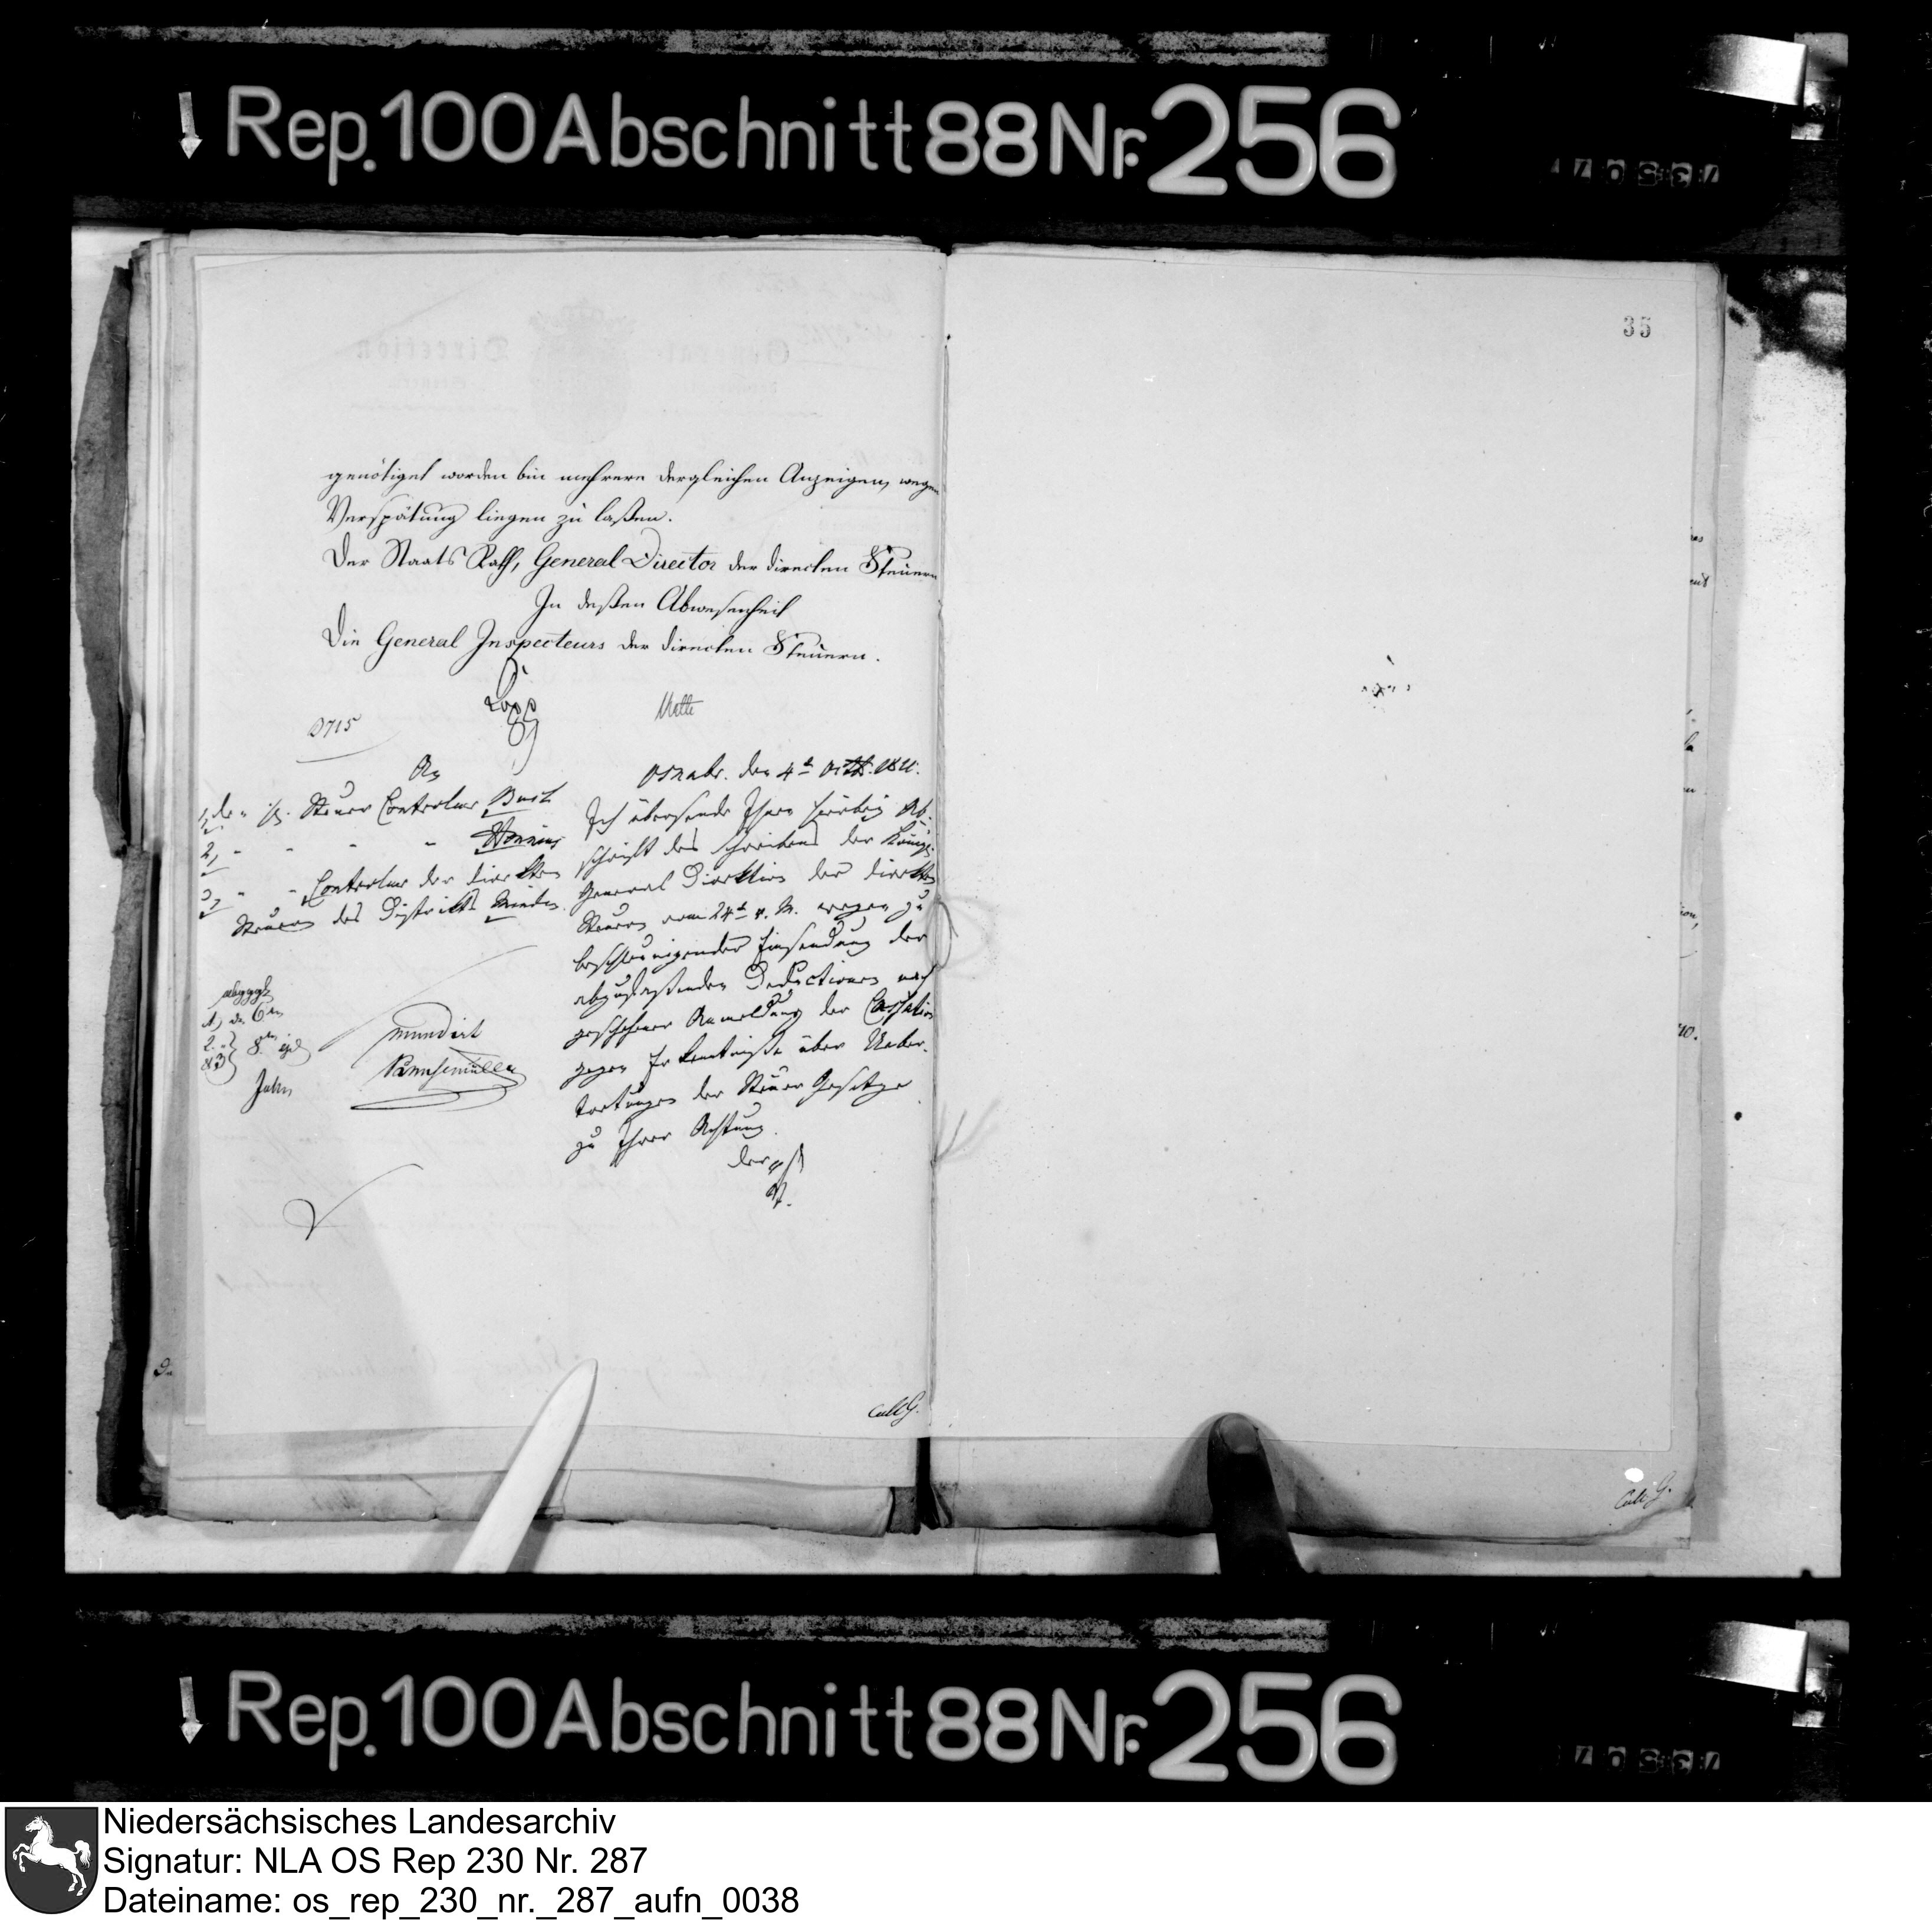 Rep. 100 Abschnitt 88 Nr. 256
35
genötiget worden bin mehrere dergleichen Anzeigen, wegen
Verspätung liegen zu laßen.
Der Staats Rath, General Director der directen Steuern
In deßen Abwesenheit
Die General Inspecteurs der directen Steuern.
Motte
2715
An
1, den H. Steuer Controleur
2, " " "
3, " " Controleur der direkten
Steuern des Distrikts Minden.
Osnabr. den 4t Octbr. 1811.
Ich übersende Ihnen hierbei Ab-
schrift des Schreibens der Königl.
General Direktion der direkten
Steuern vom 24t v. M. wegen zu
beschleunigender Einsendung der
abzufaßenden Deductionen nach
geschehener Anmeldung der Cassation
gegen Erkenntniße über Ueber-
tretungen der Steuer Gesetze
zu Ihrer Achtung.
Der
mundirt
Cult G.
Cult G.
Rep. 100 Abschnitt 88 Nr. 256
Niedersächsisches Landesarchiv
Signatur: NLA OS Rep 230 Nr. 287
Dateiname: os_rep_230_nr._287_aufn_0038